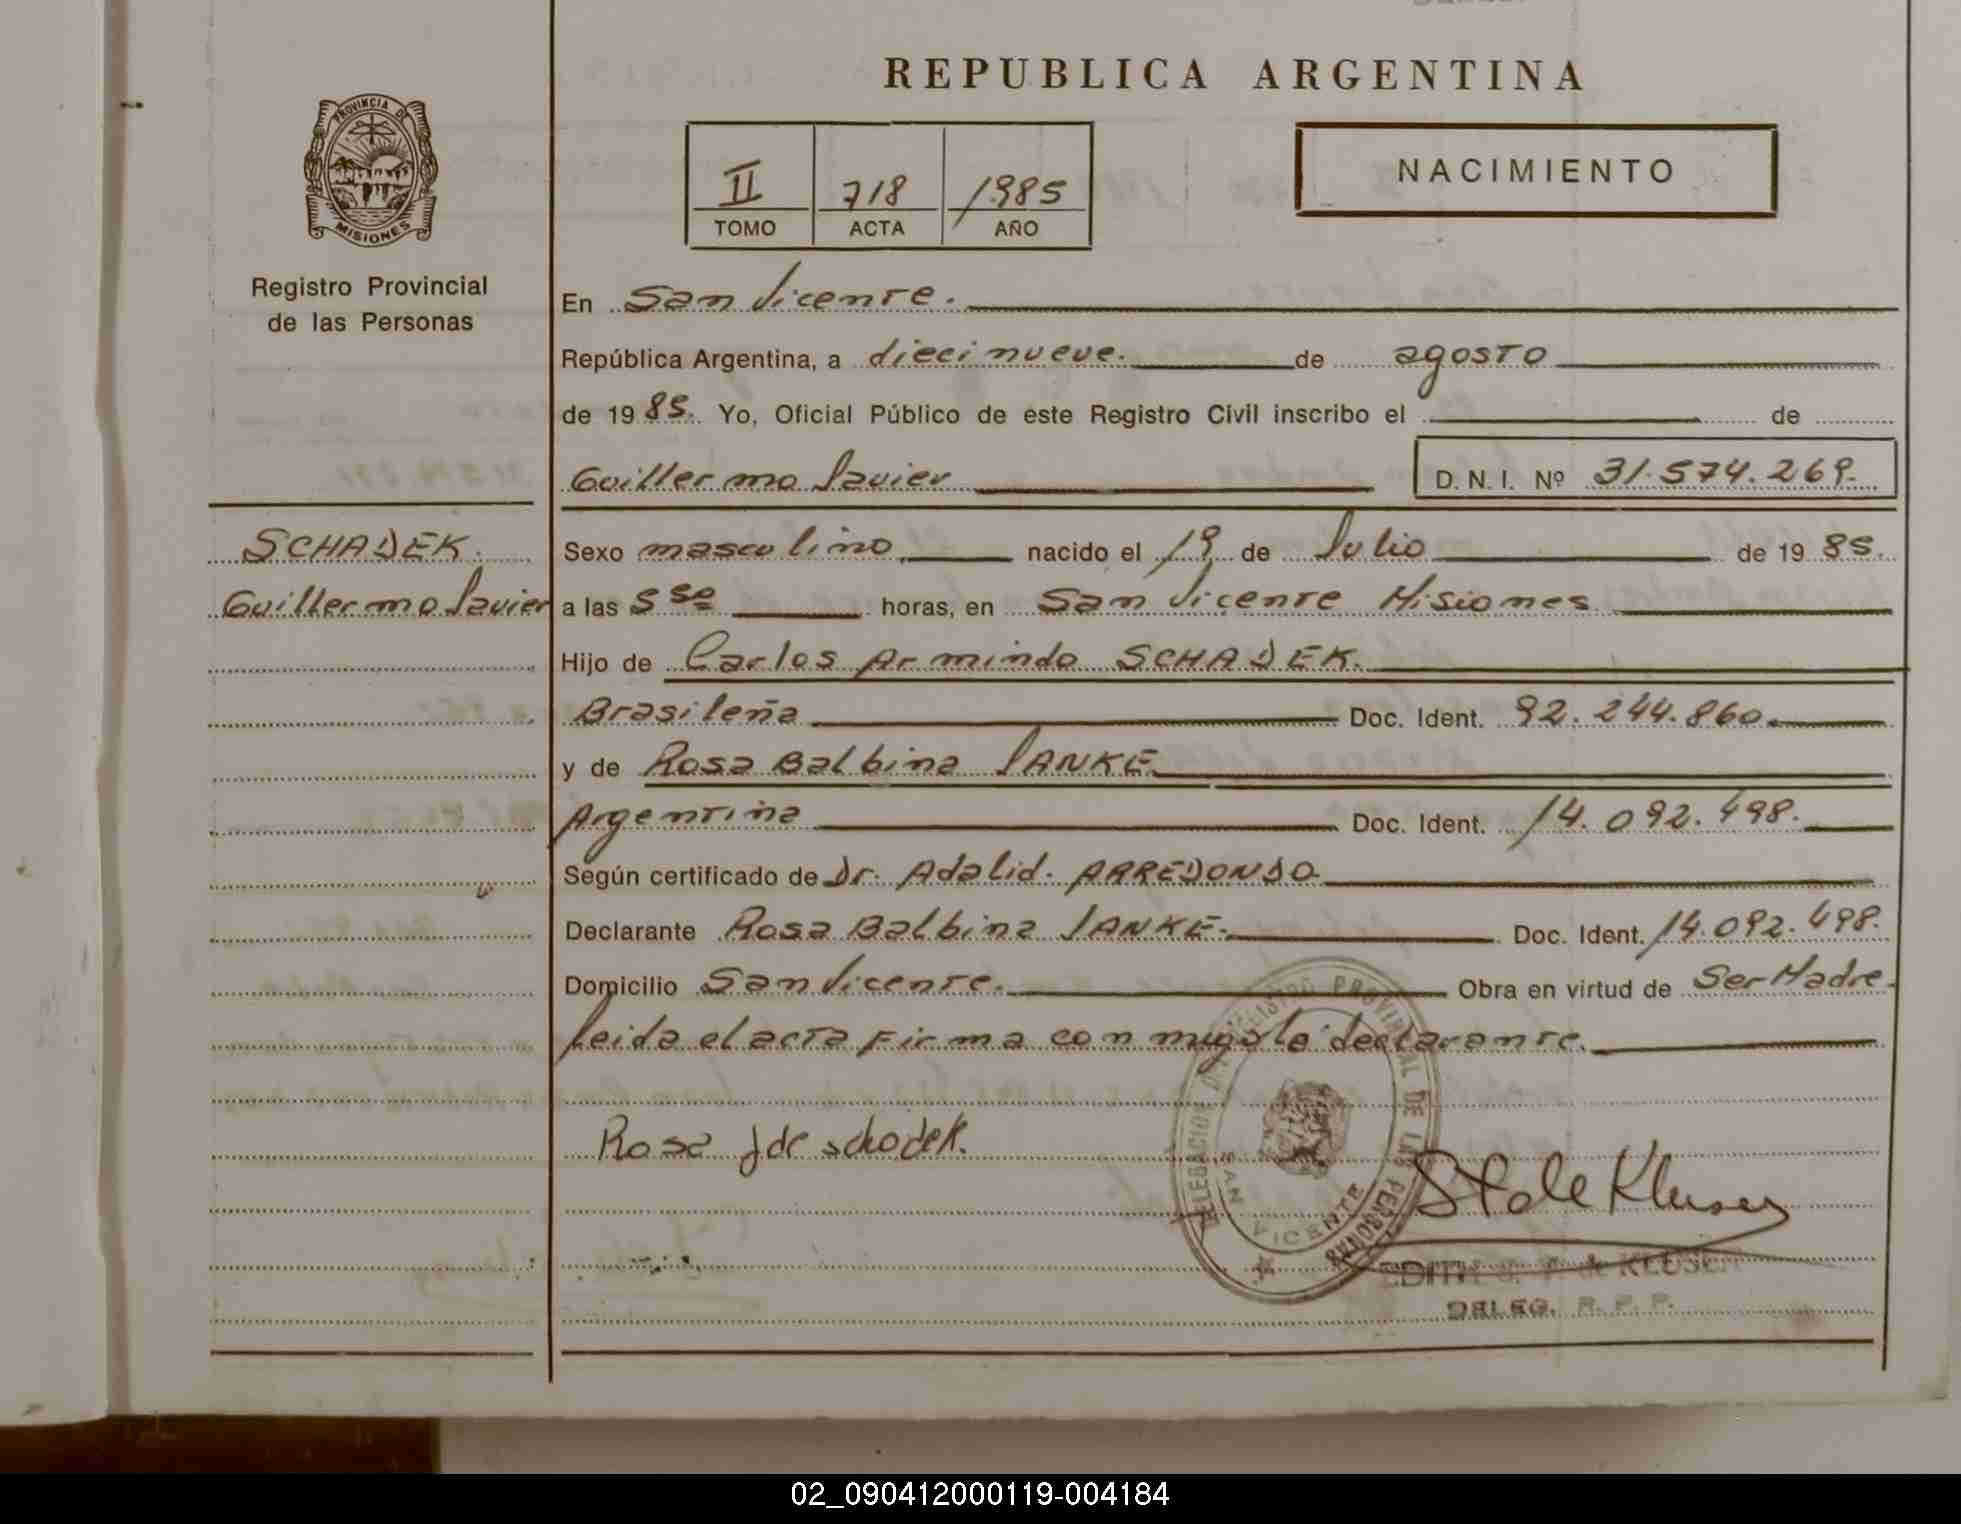 REPUBLICA ARGENTINA
PROVINCIA DE
MISIONES
Registro Provincial
de las Personas
II 718 1985
TOMO ACTA AÑO
NACIMIENTO
En San Vicente.
República Argentina, a dieci nueve. de agosto
de 1985. Yo, Oficial Público de este Registro Civil inscribo el de
Guillermo Javier D. N. I. Nº 31.574.269.
SCHADEK.
Guillermo Javier
Sexo masculino, nacido el 19 de Julio de 1985.
a las 5 se horas, en San Vicente Misiones
Hijo de Carlos Armindo SCHADEK.
Brasileña Doc. Ident. 92.244.860.
y de Rosa Balbina JANKE
Argentina Doc. Ident. 14.092.498.
Según certificado de Dr. Adalid. ARREDONDO
Declarante Rosa Balbina JANKE. Doc. Ident. 14.092.498.
Domicilio San Vicente. Obra en virtud de Ser Madre.
Leida el acta firma con migo la declarante.
Rosa J de schodek.
DELEGACION REGISTRO PROVINCIAL DE LAS PERSONAS
SAN VICENTE
St de Kluser
EDITH de KLUSER
DELEG. R. P. P.
02_090412000119-004184